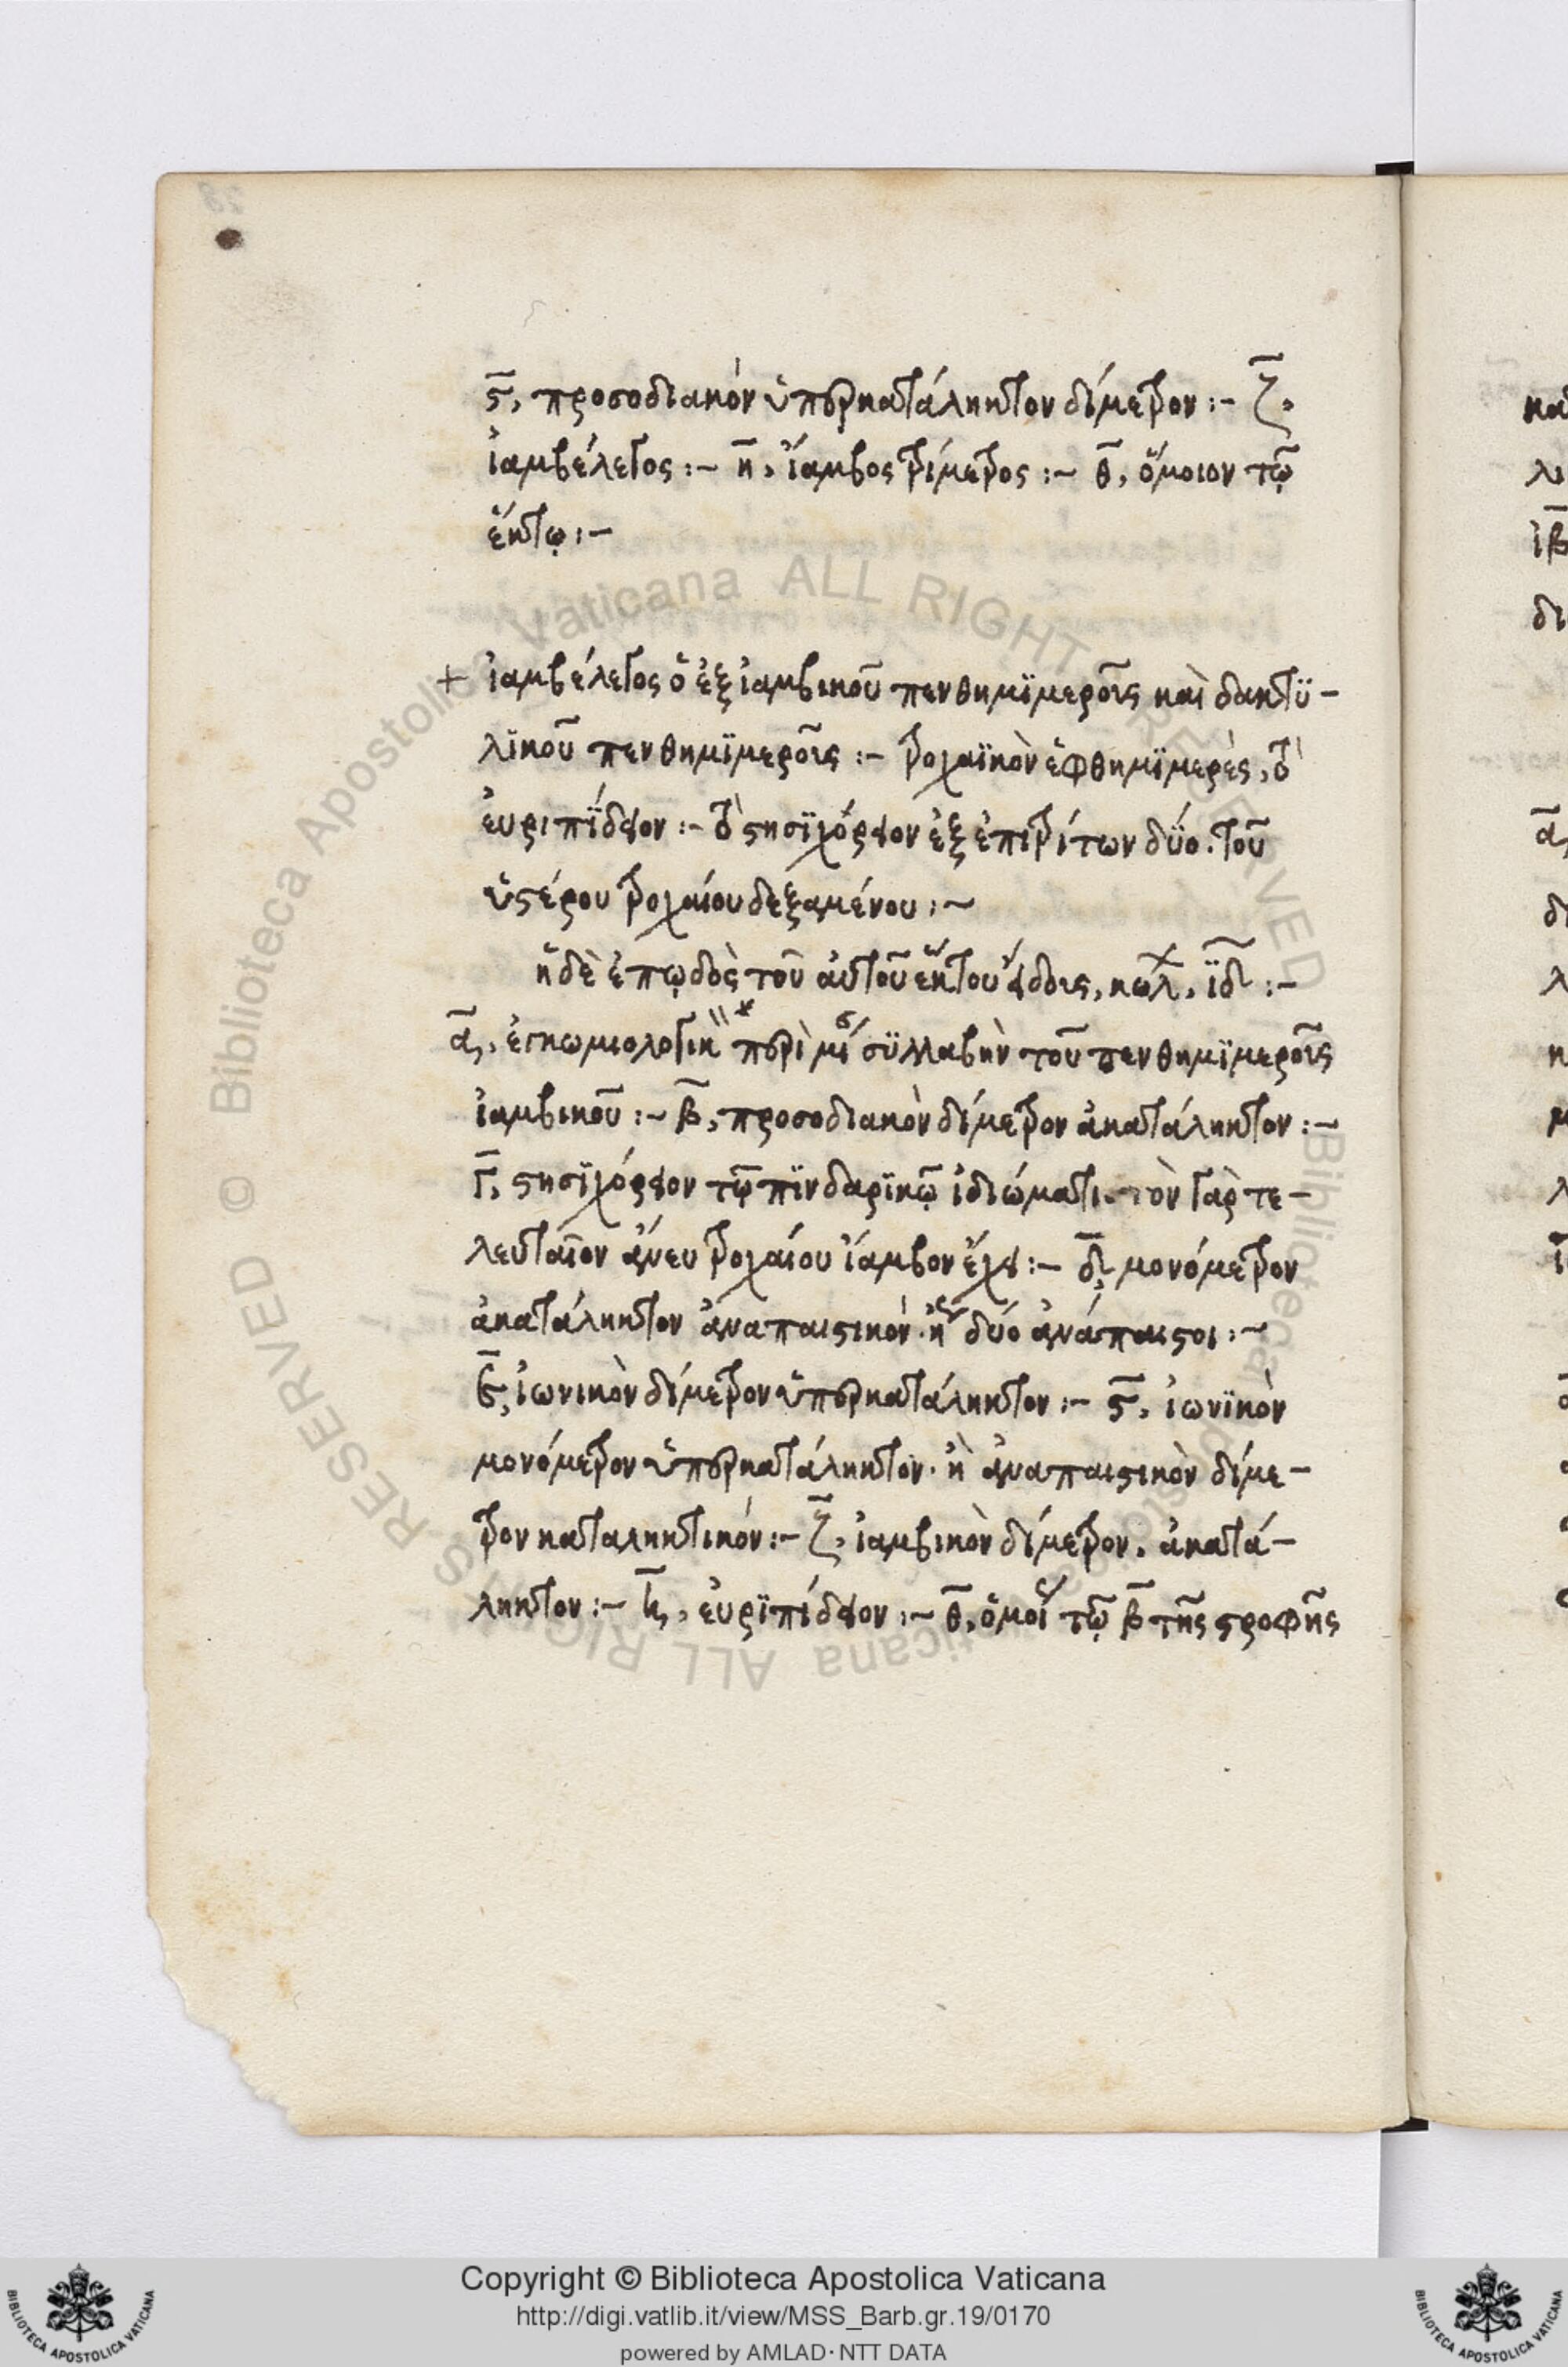 ς, προσοδιακὸν ὑπερκατάληκτον δίμετρον :- ζ,
ἰαμβέλεγος :- η, ἴαμβος τρίμετρος :- θ, ὅμοιον τῷ
ἕκτῳ :-
+ ἰαμβέλεγος ὁ ἐξ ἰαμβικοῦ πενθημϊμεροῦς καὶ δακτϋ-
λϊκοῦ πενθημϊμεροῦς :- τροχαϊκὸν ἑφθημϊμερὲς, τὸ
ἐυριπΐδειον :- τὸ στησϊχόρειον ἐξ ἐπιτρίτων δύο. τοῦ
ὑστέρου τροχαίου δεξαμένου :~
ἡ δὲ ἐπῳδὸς τοῦ αὐτοῦ ἕκτου εἴδους, κωλ, ϊδ :-
α, ἐγκωμιολογικ παρὶ μΐ σϋλλαβὴν τοῦ πενθημϊμεροῦς
ἰαμβικοῦ :- β, προσοδιακὸν δίμετρον ἀκατάληκτον :-
γ, στησϊχόρειον τῷ πϊνδαρϊκῷ ἰδιώματι. τὸν γὰρ τε-
λευταῖον ἄνευ τροχαίου ἴαμβον ἔχει :- δ, μονόμετρον
ἀκατάληκτον ἀναπαιστικὸν. ἡ δύο ἀνάπαιστοι :~
ε, ἰωνικὸν δίμετρον ὑπερκατάληκτον :- ς, ἰωνϊκὸν
μονόμετρον ὑπερκατάληκτον. ἢ ἀναπαιστικὸν δίμε-
τρον καταληκτικόν :- ζ, ἰαμβικὸν δίμετρον. ἀκατά-
ληκτον :- η, ἐυρϊπίδειον :- θ, ὅμοι τῷ β τῆς στροφῆς
Copyright © Biblioteca Apostolica Vaticana
http://digi.vatlib.it/view/MSS_Barb.gr.19/0170
powered by AMLAD · NTT DATA